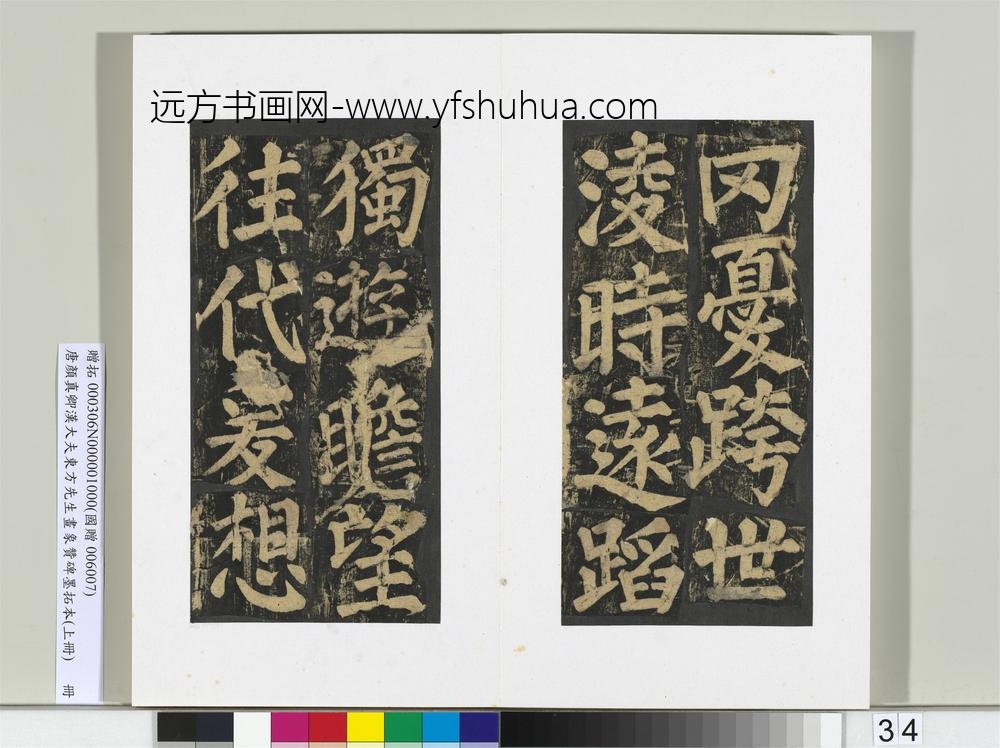 远方书画网-www.yfshuhua.com
罔憂跨世
淩時遠蹈
獨遊瞻望
往代爰想
贈拓 000306N000001000(國贈 006007)
唐顏真卿漢大夫東方先生畫象贊碑墨拓本(上冊) 冊
34